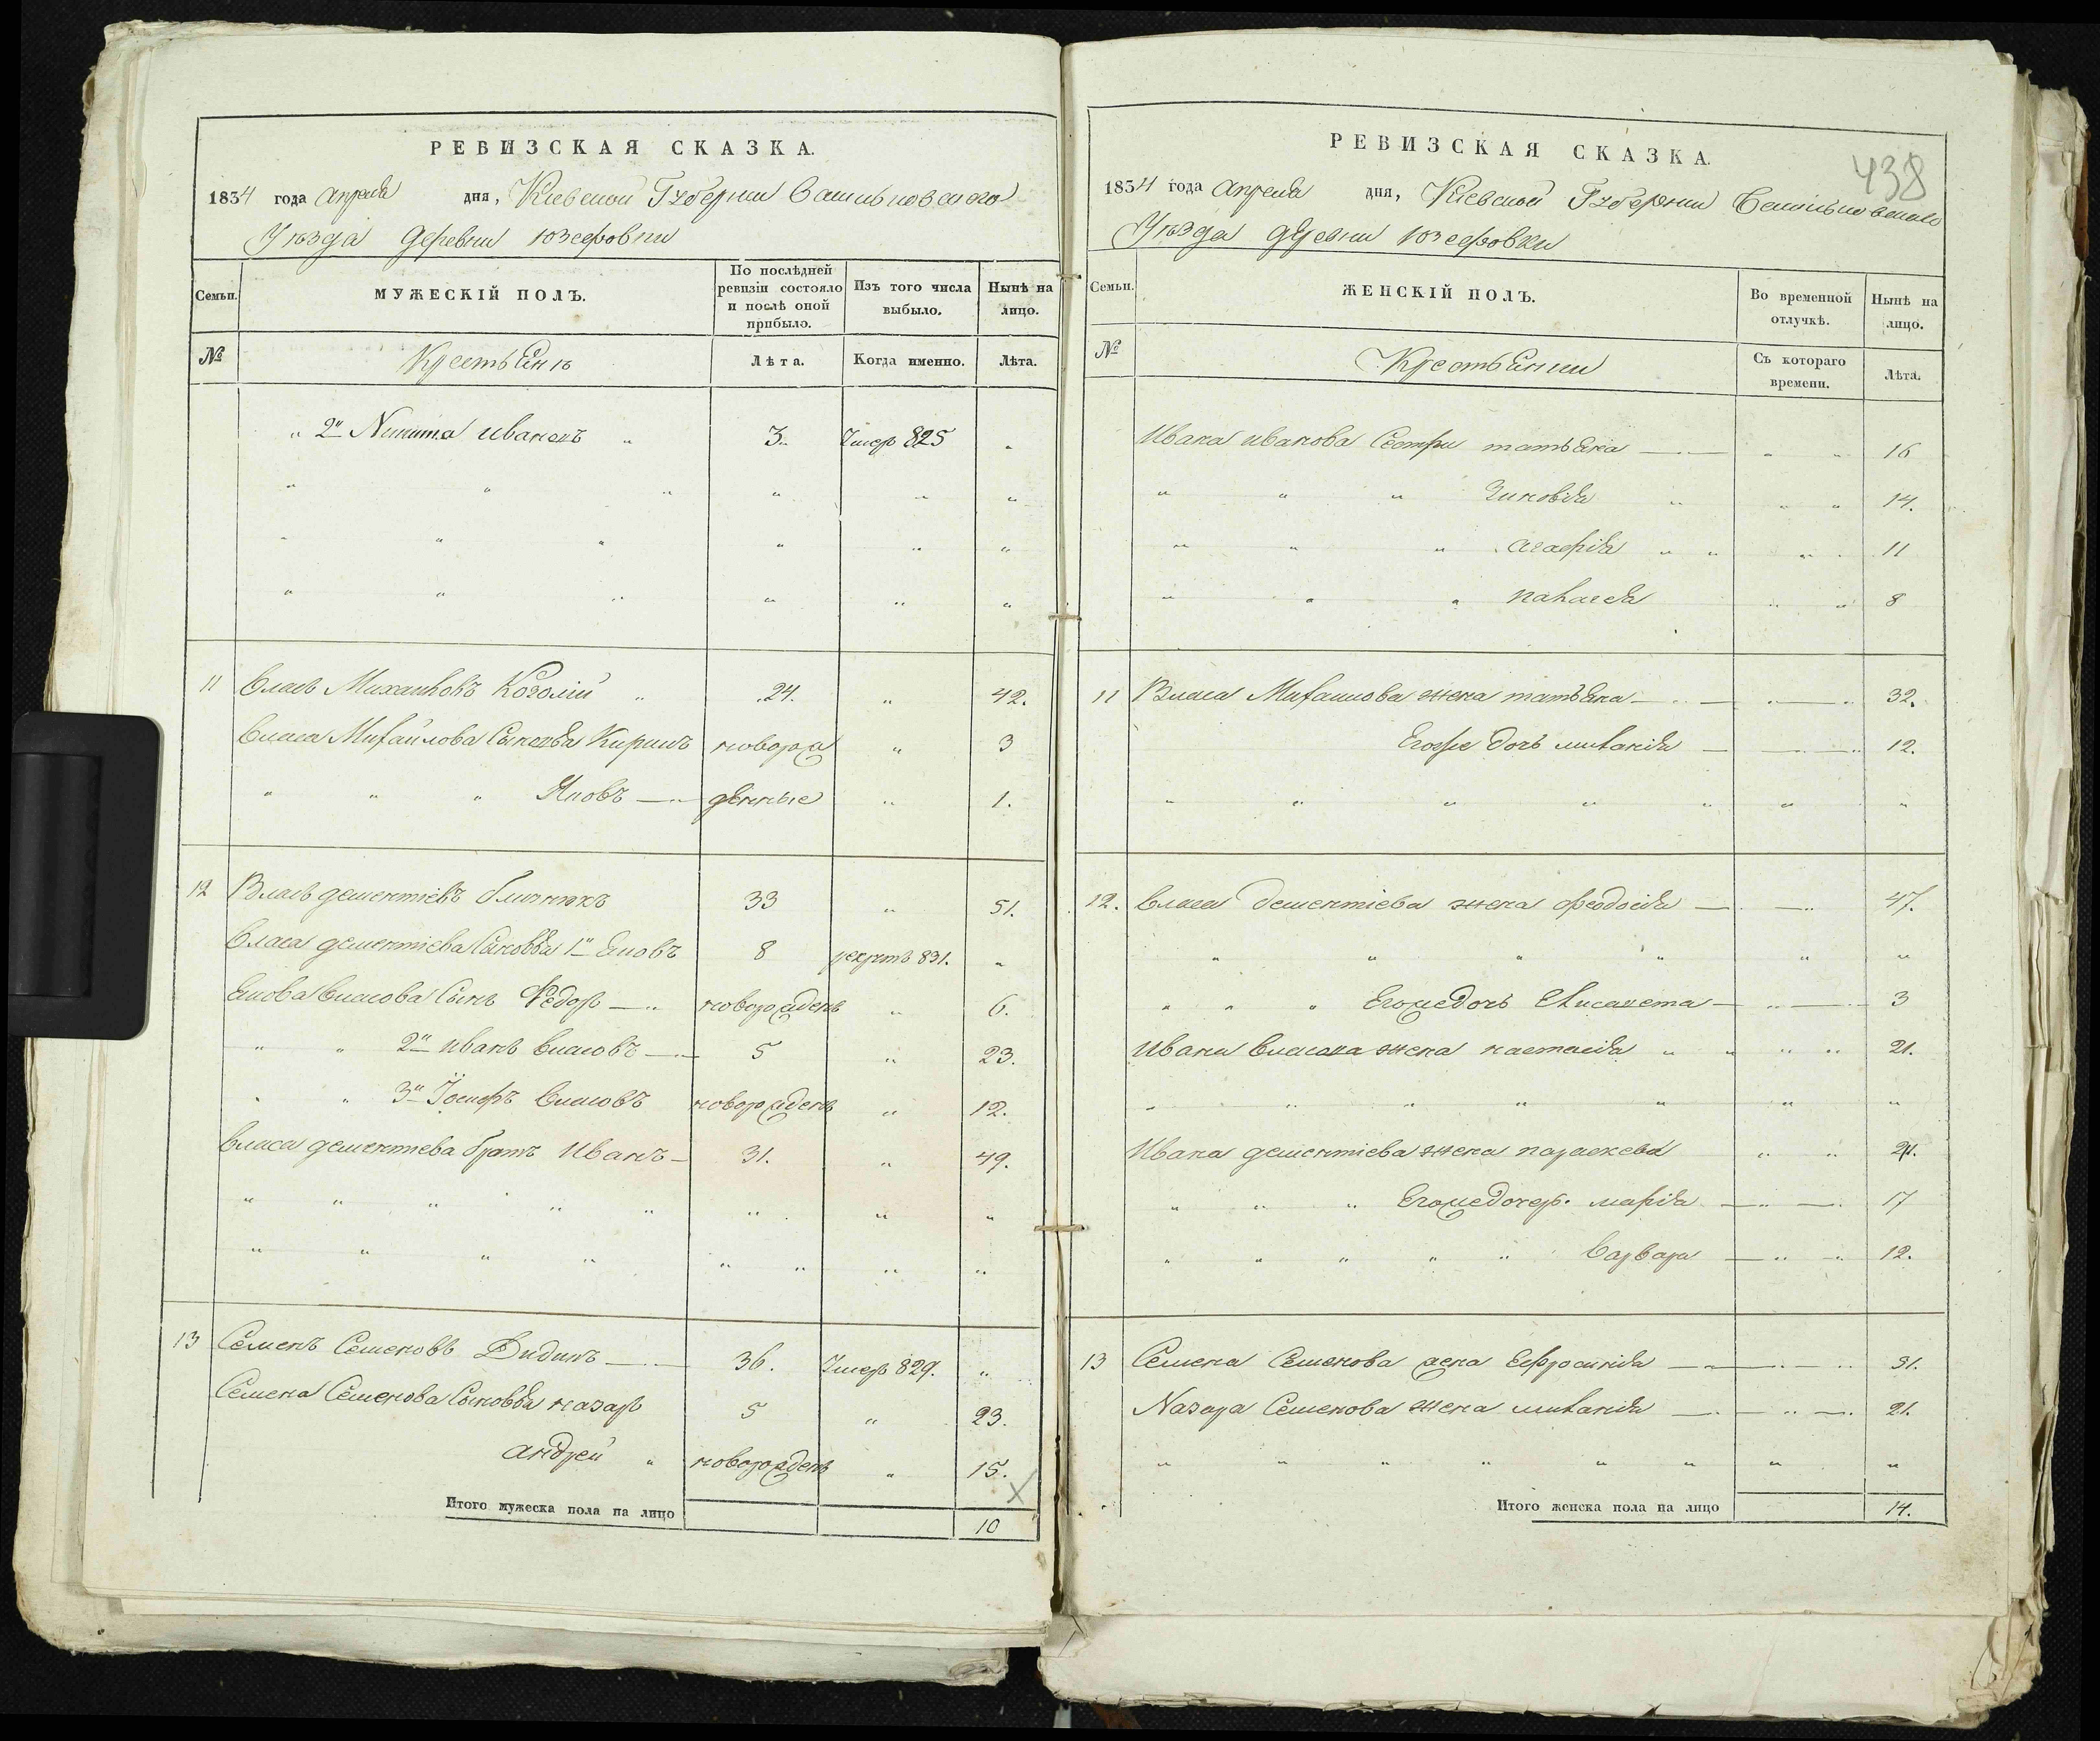 РЕВИЗСКАЯ СКАЗКА.
1834 года апреля дня, Киевской Губернии Васильковского
Уезда деревни Юзефовки
Семьи. МУЖЕСКІЙ ПОЛЪ. По послѣдней ревизіи состояло и послѣ оной прибыло. Изъ того числа выбыло. Нынѣ на лицо.
№ Крестьянъ Лѣта. Когда именно. Лѣта.
2й Никита Ивановъ 3 Умер 825
11 Власъ Михайловъ 24. 42.
Власа Михайлова Сыновья Кирилъ новорож 3
Яковъ денные 1.
12 Власъ дементіевъ 33 51.
Власа дементіева Сыновья 1й Яковъ 8 рекрутъ 831.
Якова Власова Сынъ Федор новорожденъ 6.
2й Иванъ Власовъ 5 23.
3й Іосифъ Власовъ новорожденъ 12.
Власа дементіева братъ Иванъ 31. 49.
13 Семенъ Семеновъ Дидикъ 36. Умер 829.
Семена Семенова Сыновья назар 5 23.
андрей новорожденъ 15.
Итого мужеска пола на лицо 10
438
РЕВИЗСКАЯ СКАЗКА.
1834 года апреля дня, Кіевской Губернии Васильковского
Уезда деревни Юзефовки
Семьи. ЖЕНСКІЙ ПОЛЪ. Во временной отлучкѣ. Нынѣ на лицо.
№ Крестьянки Съ котораго времени. Лѣта.
Ивана Иванова Сестри татьяна 16
Зиновія 14.
агафія 11
8
11 Власа Михаилова жена татьяна 32.
Егоже дочь миланія 12.
12. Власа дементіева жена феодосія 47.
Егоже дочь Елисавета 3
Ивана Власова жена настасія 21.
Ивана дементіева жена параскева
Егоже дочер. марія 17
Варвара 12.
13 Семена Семенова жена Ефросинія 31.
Назара Семенова жена миланія 21.
Итого женска пола на лицо 14.